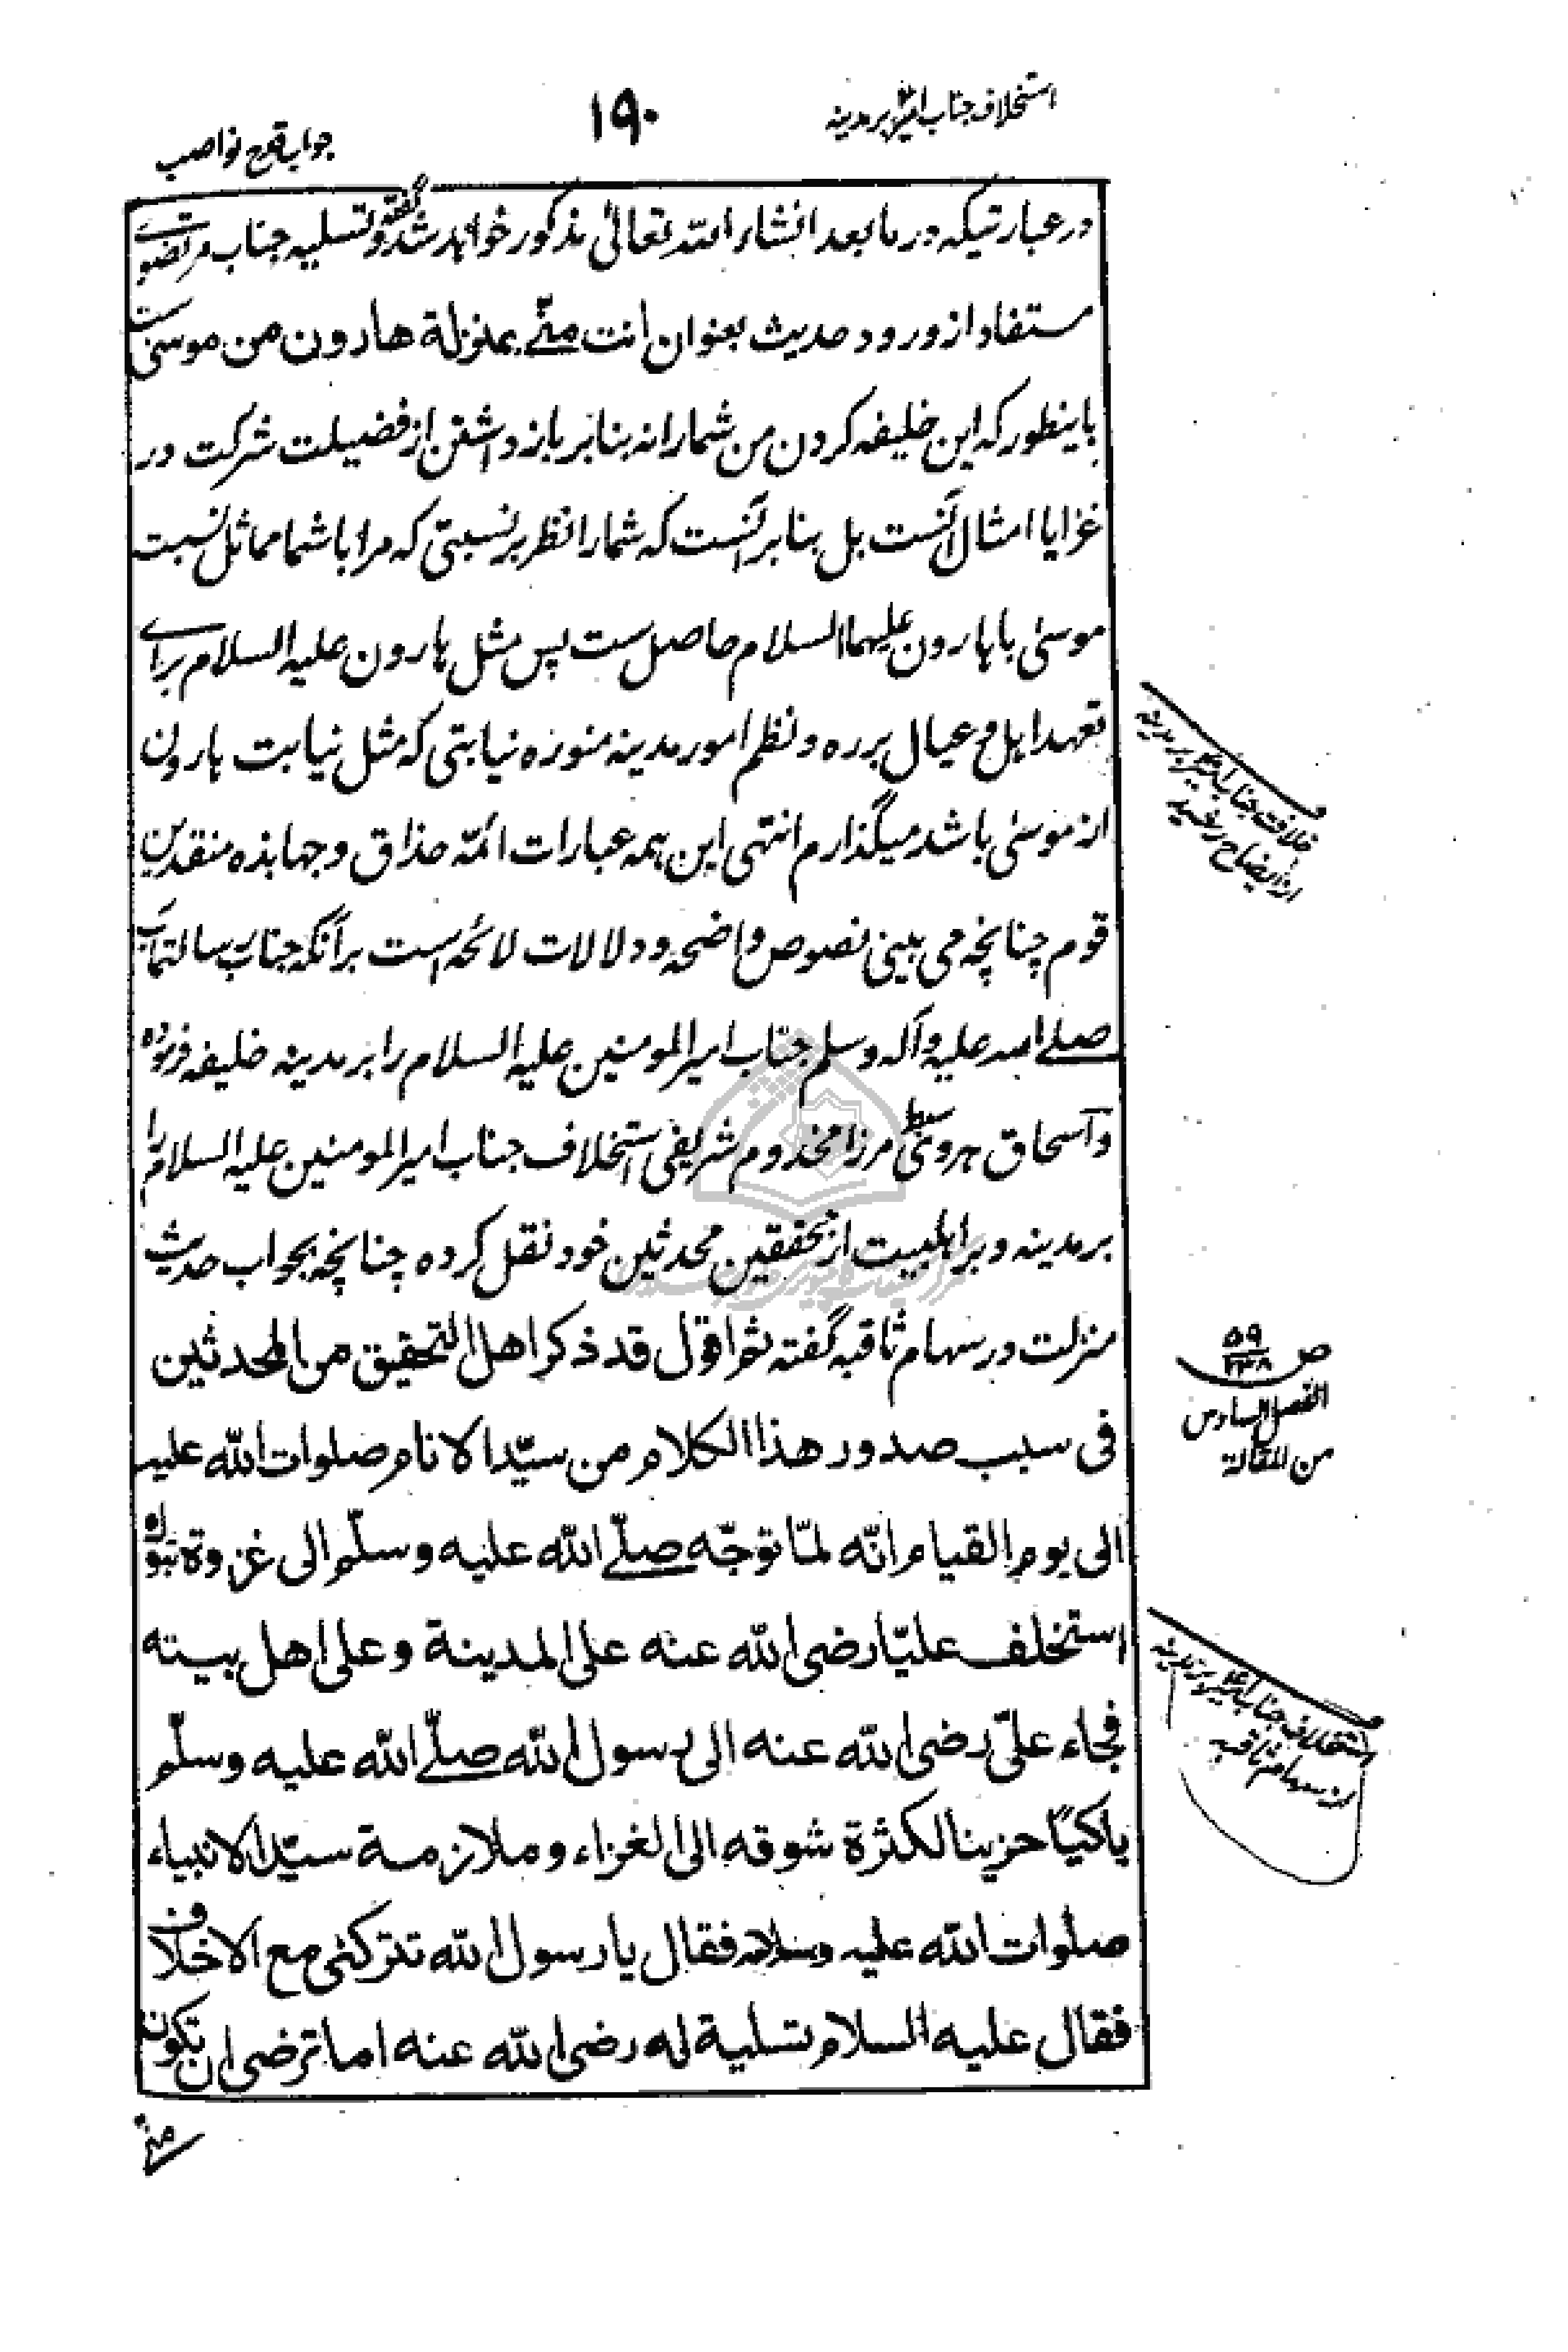 استخلاف جناب امیر بر مدینه
١٩٠
جواب قدح نواصب
در عبارتیکه در ما بعد انشاء الله تعالی مذکور خواهد شد گفته و تسلیه جناب مرتضوی
مستفاد از ورود حدیث بعنوان انت منّی بمنزلة هارون من موسی ست
باینطور که این خلیفه کردن من شما را نه بنا بر باز داشتن از فضیلت شرکت در
غزا یا امثال آنست بل بنا بر آنست که شما را نظر بر نسبتی که مرا با شما مماثل نسبت
موسیٰ با هارون علیهما السلام حاصل ست پس مثل هارون علیه السلام برای
تعهد اهل و عیال برره و نظم امور مدینه منوره نیابتی که مثل نیابت هارون
از موسیٰ باشد میگذارم انتهی این همه عبارات ائمّه حذاق و جهابذه منقدین
قوم چنانچه می بینی نصوص واضحه و دلالات لائحه است بر آنکه جناب رسالتمآب
صلے الله علیه و آله و سلم جناب امیر المومنین علیه السلام را بر مدینه خلیفه فرموده
و آسحاق هروی سبط مرزا مخدوم شریفی استخلاف جناب امیر المومنین علیه السلام را
بر مدینه و بر اهلبیت از محققین محدثین خود نقل کرده چنانچه بجواب حدیث
منزلت در سهام ثاقبه گفته ثم اقول قد ذکر اهل التحقیق من المحدثین
فی سبب صدور هذا الکلام من سیّد الانام صلوات الله علیه
الی یوم القیام انّه لمّا توجّه صلّے الله علیه وسلّم الی غزوة تبوك
استخلف علیّا رضی الله عنه علی المدینة و علی اهل بیته
فجاء علیّ رضی الله عنه الی رسول الله صلّے الله علیه وسلّم
باکیًا حزینا لکثرة شوقه الی الغزاء و ملازمة سیّد الانبیاء
صلوات الله علیه وسلامه فقال یا رسول الله تترکنی مع الاخلاف
فقال علیه السلام تسلیة له رضی الله عنه اما ترضی ان تکون
منّے
خلافت جناب امیر بر مدینه
از ایضاح رشید
ص ٥٩
٢٣٨
الفصل السادس
من المقالة
استخلاف جناب امیر بر مدینه
از سهام ثاقبه